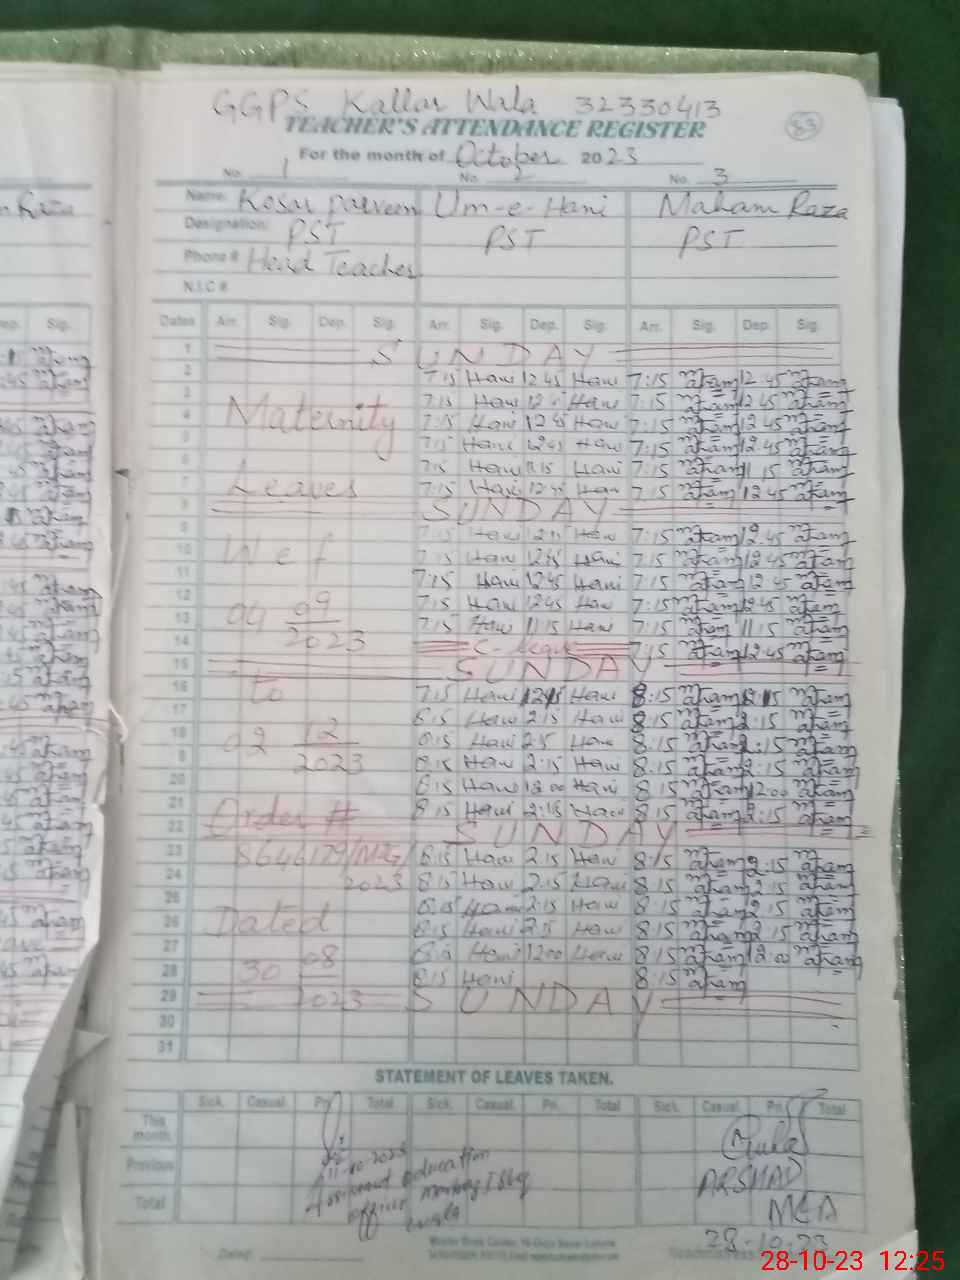 GGPS Kallar Wala 32330413
TEACHER'S ATTENDANCE REGISTER
83
For the month of October 2023
No. 1 No. 2 No. 3
Name. Kosar Parveen Um-e-Hani Maham Raza
Designation: PST PST PST
Phone # Head Teacher
N.I.C #
Dates Arr. Sig. Dep. Sig. Arr. Sig. Dep. Sig. Arr. Sig. Dep. Sig.
1 SUNDAY
2 7:15 Hani 12 45 Hani 7:15 Maham 12 45 Maham
3 7:15 Hani Hani 7:15 Maham 12 45 Maham
4 Maternity 7:15 Hani 12 45 Hani 7:15 Maham 12 45 Maham
5 7:15 Hani 12 45 Hani 7:15 Maham 12.45 Maham
6 7:15 Hani 11 15 Hani 7:15 Maham 11 15 Maham
7 Leaves 7:15 Hani 12 45 Hani 7:15 Maham 12 45 Maham
8 SUNDAY
9 7:15 Hani Hani 7:15 Maham 12.45 Maham
10 Wef 7:15 Hani 12 45 Hani 7:15 Maham 12 45 Maham
11 7:15 Hani 12 45 Hani 7:15 Maham 12 45 Maham
12 04 09 7:15 Hani 12 45 Hani 7:15 Maham 12 45 Maham
13 2023 7:15 Hani 11 15 Hani 7:15 Maham 11 15 Maham
14 7:15 Maham 12 45 Maham
15 SUNDAY
16 to 7:15 Hani Hani 8:15 Maham Maham
17 8:15 Hani 2:15 Hani 8:15 Maham 2:15 Maham
18 02 12 8:15 Hani 2:15 Hani 8:15 Maham 2:15 Maham
19 2023 8:15 Hani 2:15 Hani 8:15 Maham 2:15 Maham
20 8:15 Hani 12 00 Hani 8:15 Maham 12:00 Maham
21 Order # 8:15 Hani 2:15 Hani 8:15 Maham 2:15 Maham
22 SUNDAY
23 8:15 Hani 2:15 Hani 8:15 Maham 2:15 Maham
24 2023 8:15 Hani 2:15 Hani 8:15 Maham 2:15 Maham
25 8:15 Hani 2:15 Hani 8:15 Maham 2:15 Maham
26 Dated 8:15 Hani 2:15 Hani 8:15 Maham 2:15 Maham
27 08 Hani 12 00 Hani 8:15 Maham 12:00 Maham
28 30 8:15 Hani 8:15 Maham
29 2023 SUNDAY
30
31
STATEMENT OF LEAVES TAKEN.
Sick. Casual. Pri. Total Sick. Casual. Pri. Total Sick. Casual. Pri. Total
This month.
Previous
Total
Assistant Education
officer
ARSHAD
MEA
28-10-23
Dated
28-10-23 12:25